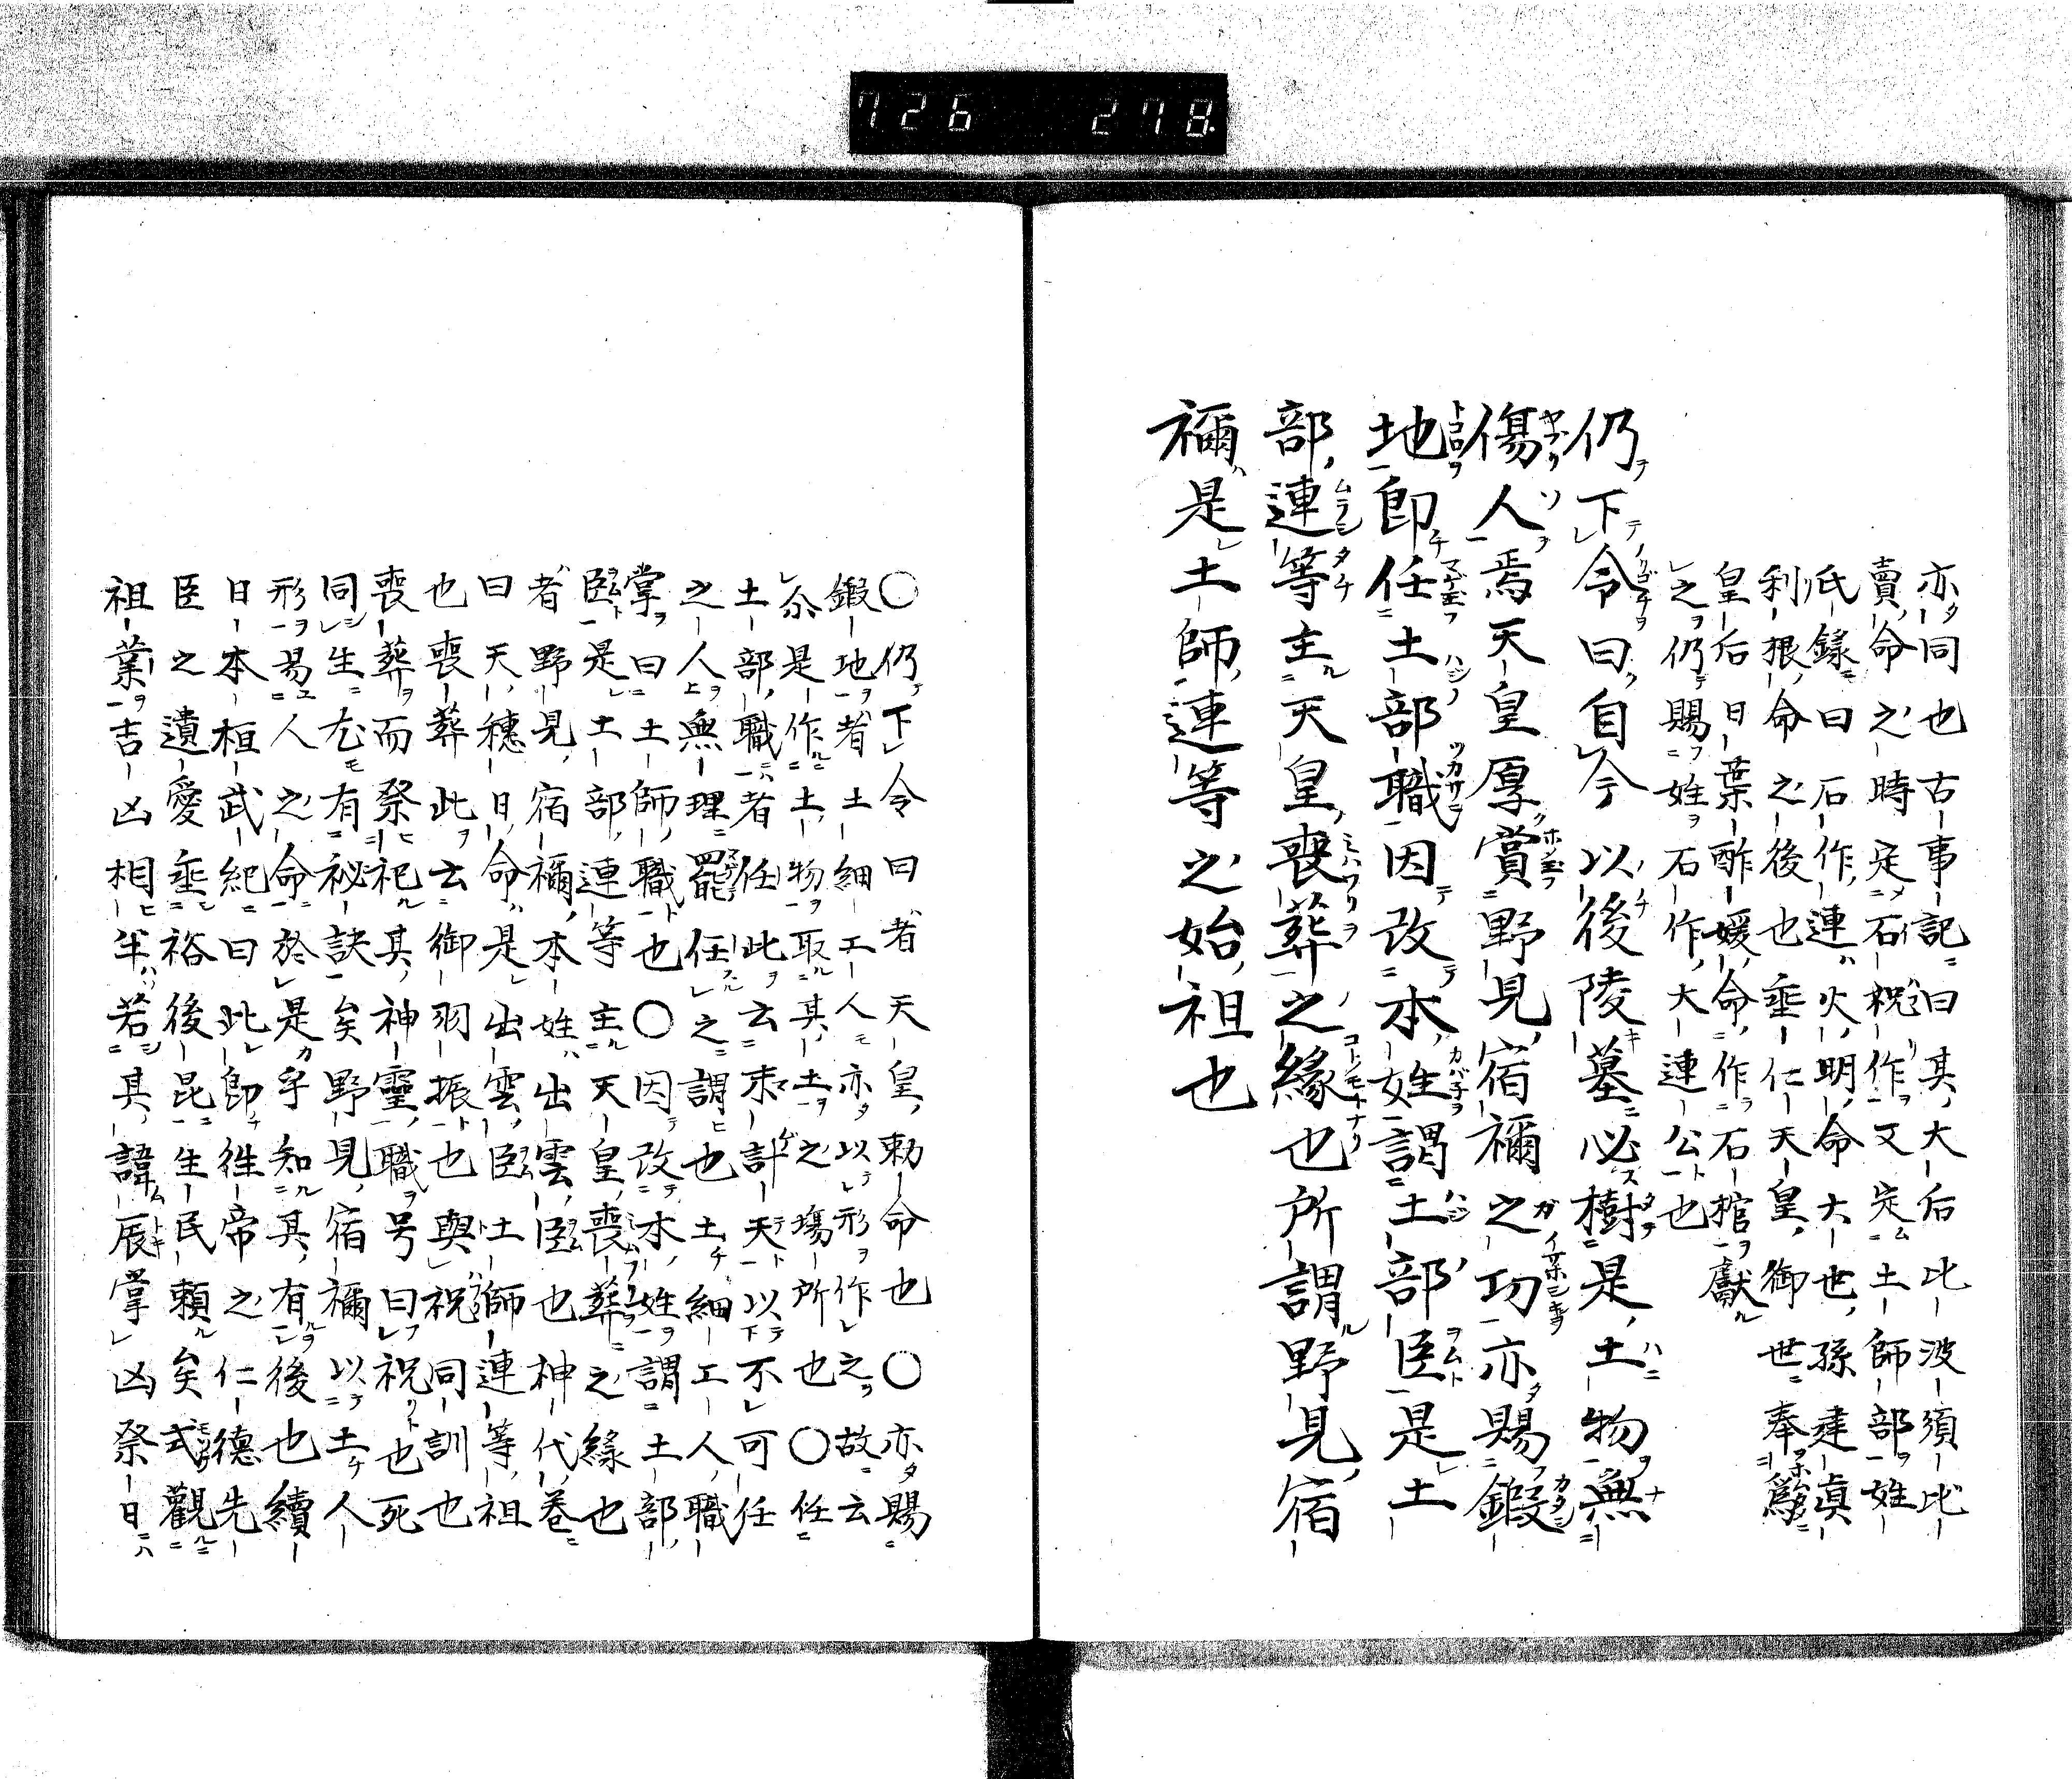 726 278
亦同也古事記曰其大后比波須比
賣命之時定石祝作又定土師部姓
氏録曰石作連火明命六世孫建眞
利根命之後也垂仁天皇御世奉爲
皇后日葉酢媛命作石棺獻
之仍賜姓石作大連公也
仍下令曰自今以後陵墓必樹是土物無
傷人焉天皇厚賞野見宿禰之功亦賜鍛
地即任土部職因改本姓謂土部臣是土
部連等主天皇喪葬之緣也所謂野見宿
禰是土師連等之始祖也
〇仍下令曰者天皇勅命也〇亦賜
鍛地者土細工人亦以形作之故云
尒是作土物取其土之場所也〇任
土部職者任此云末計天以不可任
之人無理罷任之謂也土細工人職
掌曰土師職也〇因改本姓謂土部
臣是土部連等主天皇喪葬之緣也
者野見宿禰本姓出雲臣也神代卷
曰天穗日命是出雲臣土師連等祖
也喪葬此云御羽振也與祝同訓也
喪葬而祭祀其神靈職号曰祝也死
同生尤有祕訣矣野見宿禰以土人
形易人之命於是乎知其有後也續
日本桓武紀曰此即徃帝之仁德先
臣之遺愛垂裕後昆生民賴矣式觀
祖業吉凶相半若其諱辰掌凶祭日